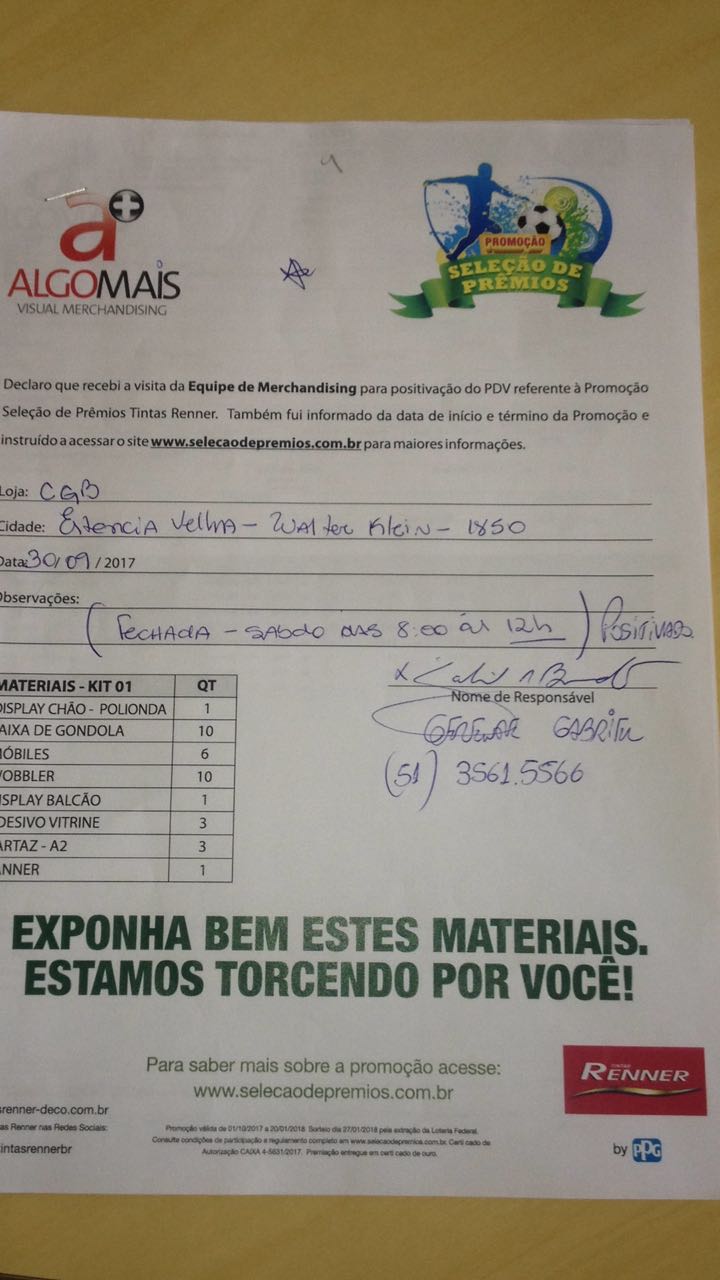 a+
ALGOMAIS
VISUAL MERCHANDISING
PROMOÇÃO
SELEÇÃO DE
PRÊMIOS
Declaro que recebi a visita da Equipe de Merchandising para positivação do PDV referente à Promoção
Seleção de Prêmios Tintas Renner. Também fui informado da data de início e término da Promoção e
instruído a acessar o site www.selecaodepremios.com.br para maiores informações.
Loja: CGB
Cidade: Estencia Velha - Walter Klein - 1850
Data: 30/09/2017
Observações:
(Fechada - sabdo das 8:00 ás 12h) Positivado
Nome de Responsável
Gabriel
(51) 3561.5566
MATERIAIS - KIT 01 QT
DISPLAY CHÃO - POLIONDA 1
AIXA DE GONDOLA 10
MÓBILES 6
WOBBLER 10
ISPLAY BALCÃO 1
DESIVO VITRINE 3
ARTAZ - A2 3
ANNER 1
EXPONHA BEM ESTES MATERIAIS.
ESTAMOS TORCENDO POR VOCÊ!
Para saber mais sobre a promoção acesse:
www.selecaodepremios.com.br
TINTAS
RENNER
by PPG
srenner-deco.com.br
as Renner nas Redes Sociais:
intasrennerbr
Promoção válida de 01/10/2017 a 20/01/2018 Sorteio dia 27/01/2018 pela extração da Loteria Federal.
Consulte condições de participação e regulamento completo em www.selecaodepremios.com.br. Certi cado de
Autorização CAIXA 4-5631/2017. Premiação entregue em certi cado de ouro.